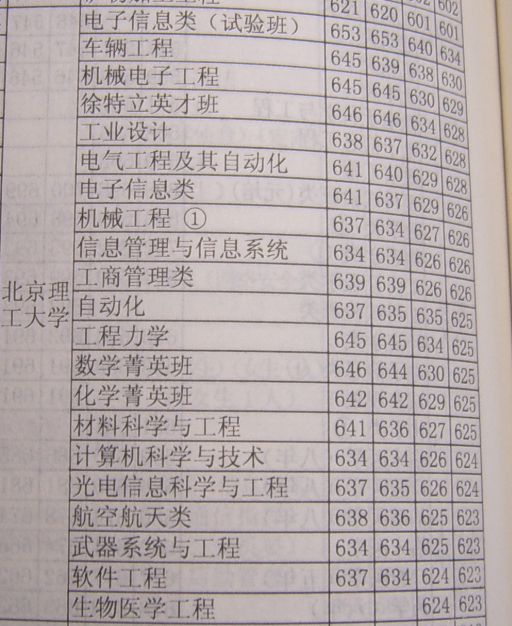 621 620 601 601
电子信息类（试验班） 653 653 640 634
车辆工程 645 639 638 630
机械电子工程 645 645 630 629
徐特立英才班 646 646 634 628
工业设计 638 637 632 628
电气工程及其自动化 641 640 629 628
电子信息类 641 637 629 626
机械工程① 637 634 627 626
信息管理与信息系统 634 634 626 626
工商管理类 639 639 626 626
北京理
工大学
自动化 637 635 635 625
工程力学 645 645 634 625
数学菁英班 646 644 630 625
化学菁英班 642 642 629 625
材料科学与工程 641 636 627 625
计算机科学与技术 634 634 626 624
光电信息科学与工程 637 635 626 624
航空航天类 638 636 625 623
武器系统与工程 634 634 625 623
软件工程 637 634 624 623
生物医学工程 624 623